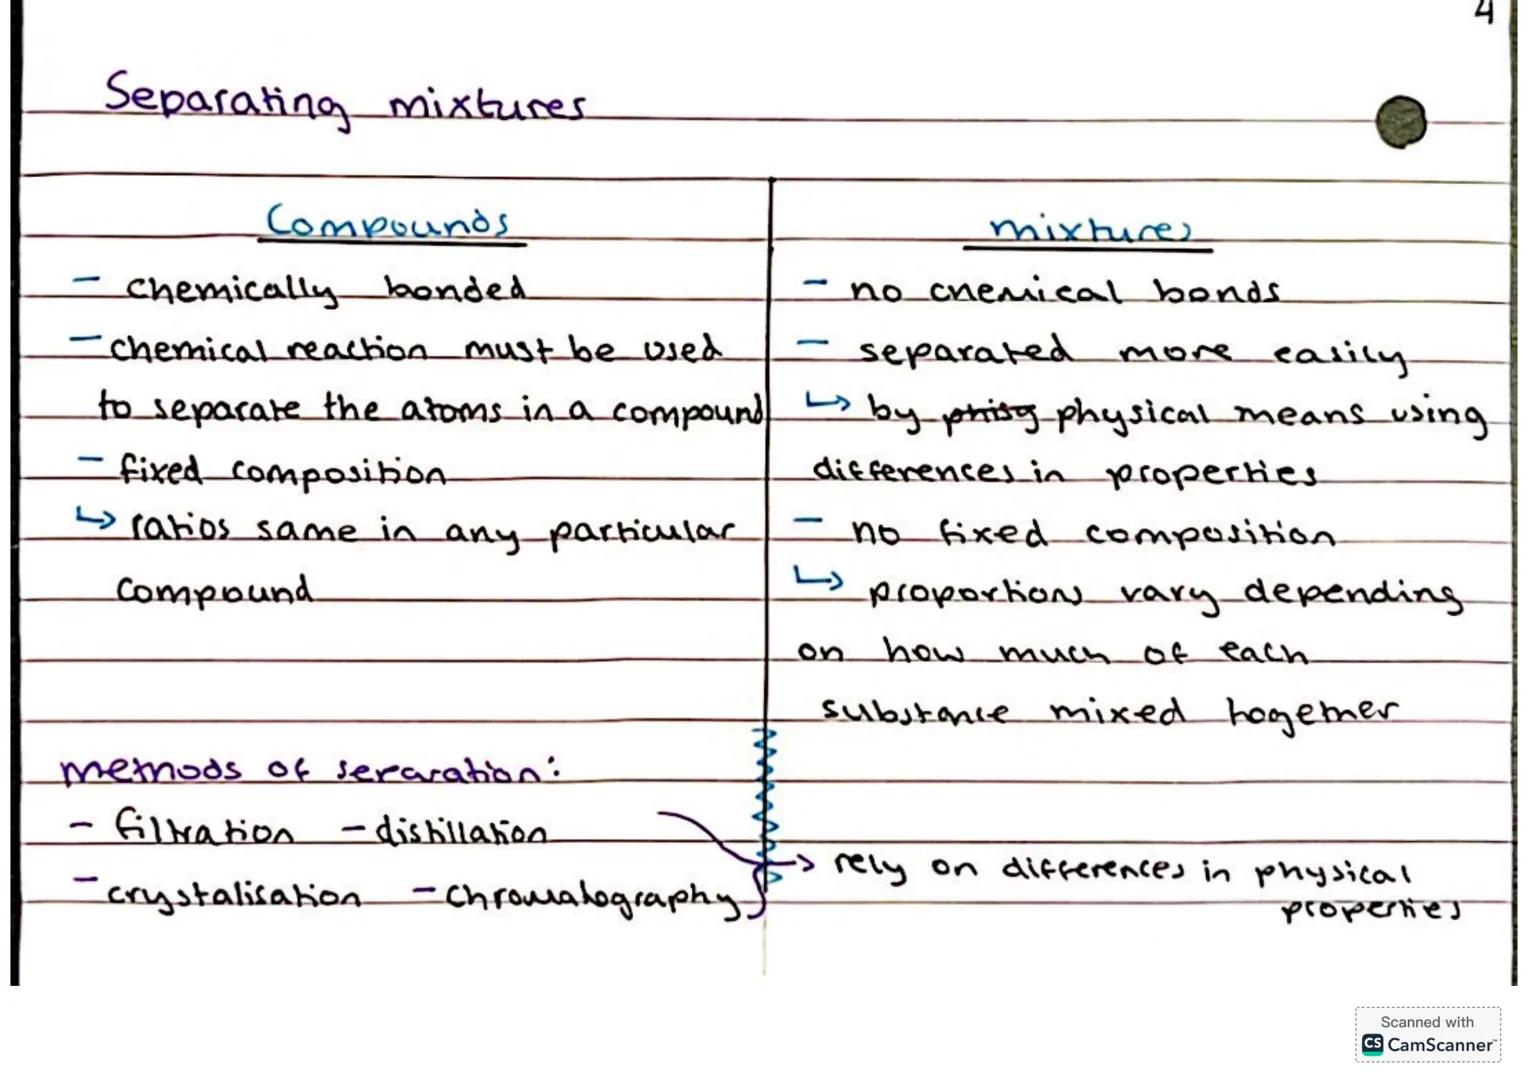 4
Separating mixtures
Compounds
- chemically bonded
- chemical reaction must be used
to separate the atoms in a compound
- fixed composition
↳ ratios same in any particular
compound
mixtures
- no chemical bonds
- separated more easily
↳ by phisy physical means using
differences in properties
- no fixed composition
↳ proportions vary depending
on how much of each
substance mixed together
methods of separation:
- filtration - distillation
- crystalisation - chromatography
→ rely on differences in physical
properties
Scanned with
CS CamScanner